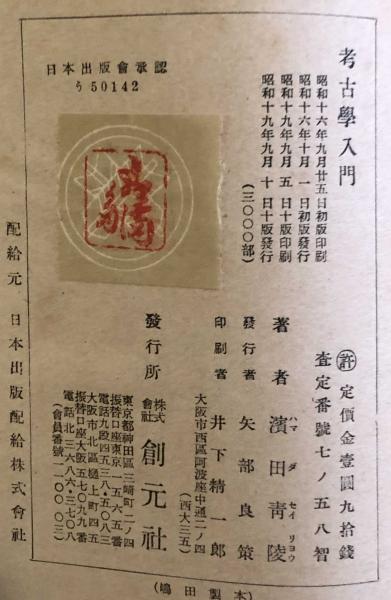 考古學入門
昭和十六年九月廿五日初版印刷
昭和十六年十月一日初版發行
昭和十九年九月五日十版印刷
昭和十九年九月十日十版發行
(三〇〇〇部)
日本出版會承認
う50142
㊞ 定價金壹圓九拾錢
査定番號七ノ五八智
著者 濱田靑陵
ハマ ダ セイ リョウ
發行者 矢部良策
印刷者 井下精一郎
大阪市西區阿波座中通二ノ四
(西大三五)
發行所
株式會社 創元社
東京都神田區三崎町二ノ四
振替口座東京一五六五番
電話九段四五三八・五〇八三
大阪市北區樋上町四五
振替口座大阪五七〇九九番
電話北三六八六・三七〇八
(會員番號一〇〇二)
配給元 日本出版配給株式會社
(嶋田製本)